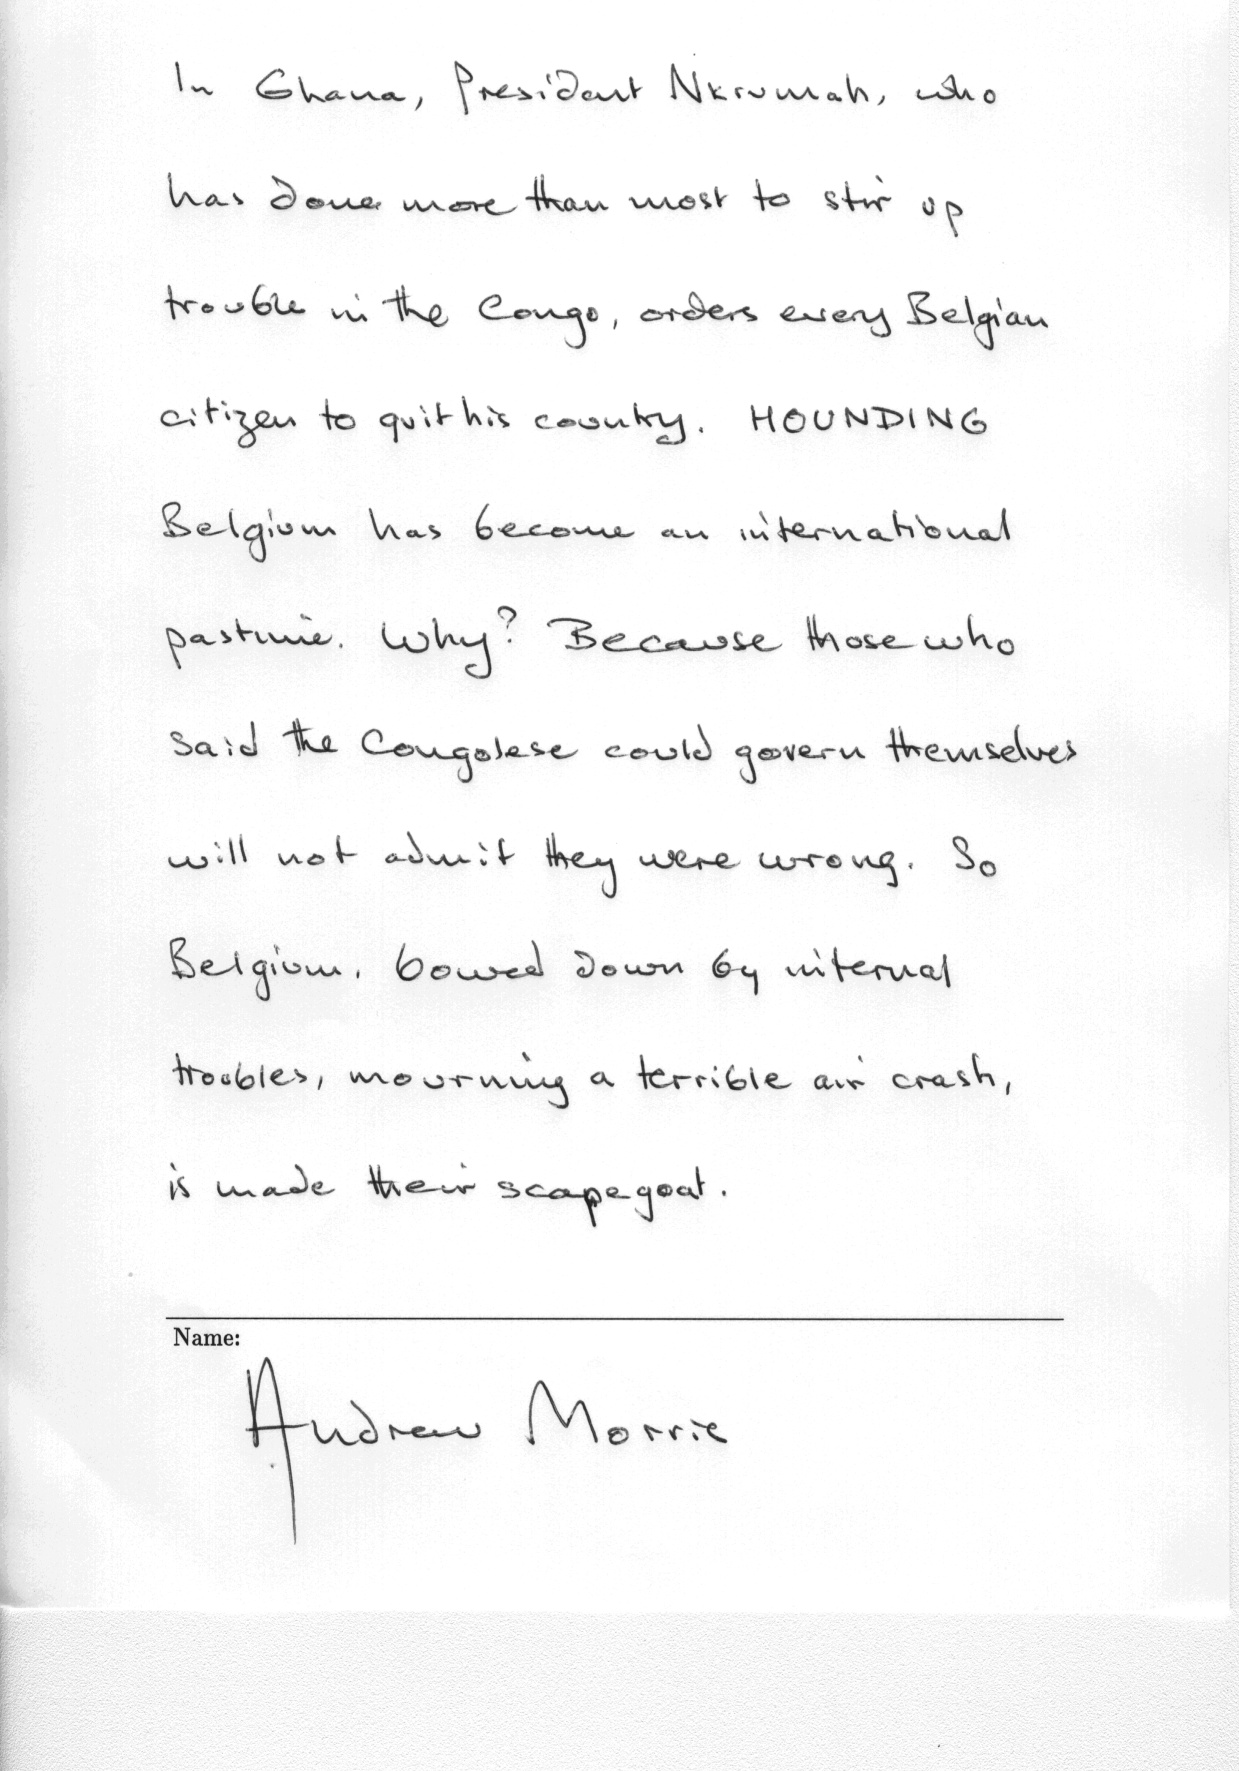 In Ghana, President Nkrumah, who
has done more than most to stir up
trouble in the Congo, orders every Belgian
citizen to quit his country. HOUNDING
Belgium has become an international
pastime. Why? Because those who
said the Congolese could govern themselves
will not admit they were wrong. So
Belgium, bowed down by internal
troubles, mourning a terrible air crash,
is made their scapegoat.
Name:
Andrew Morrie